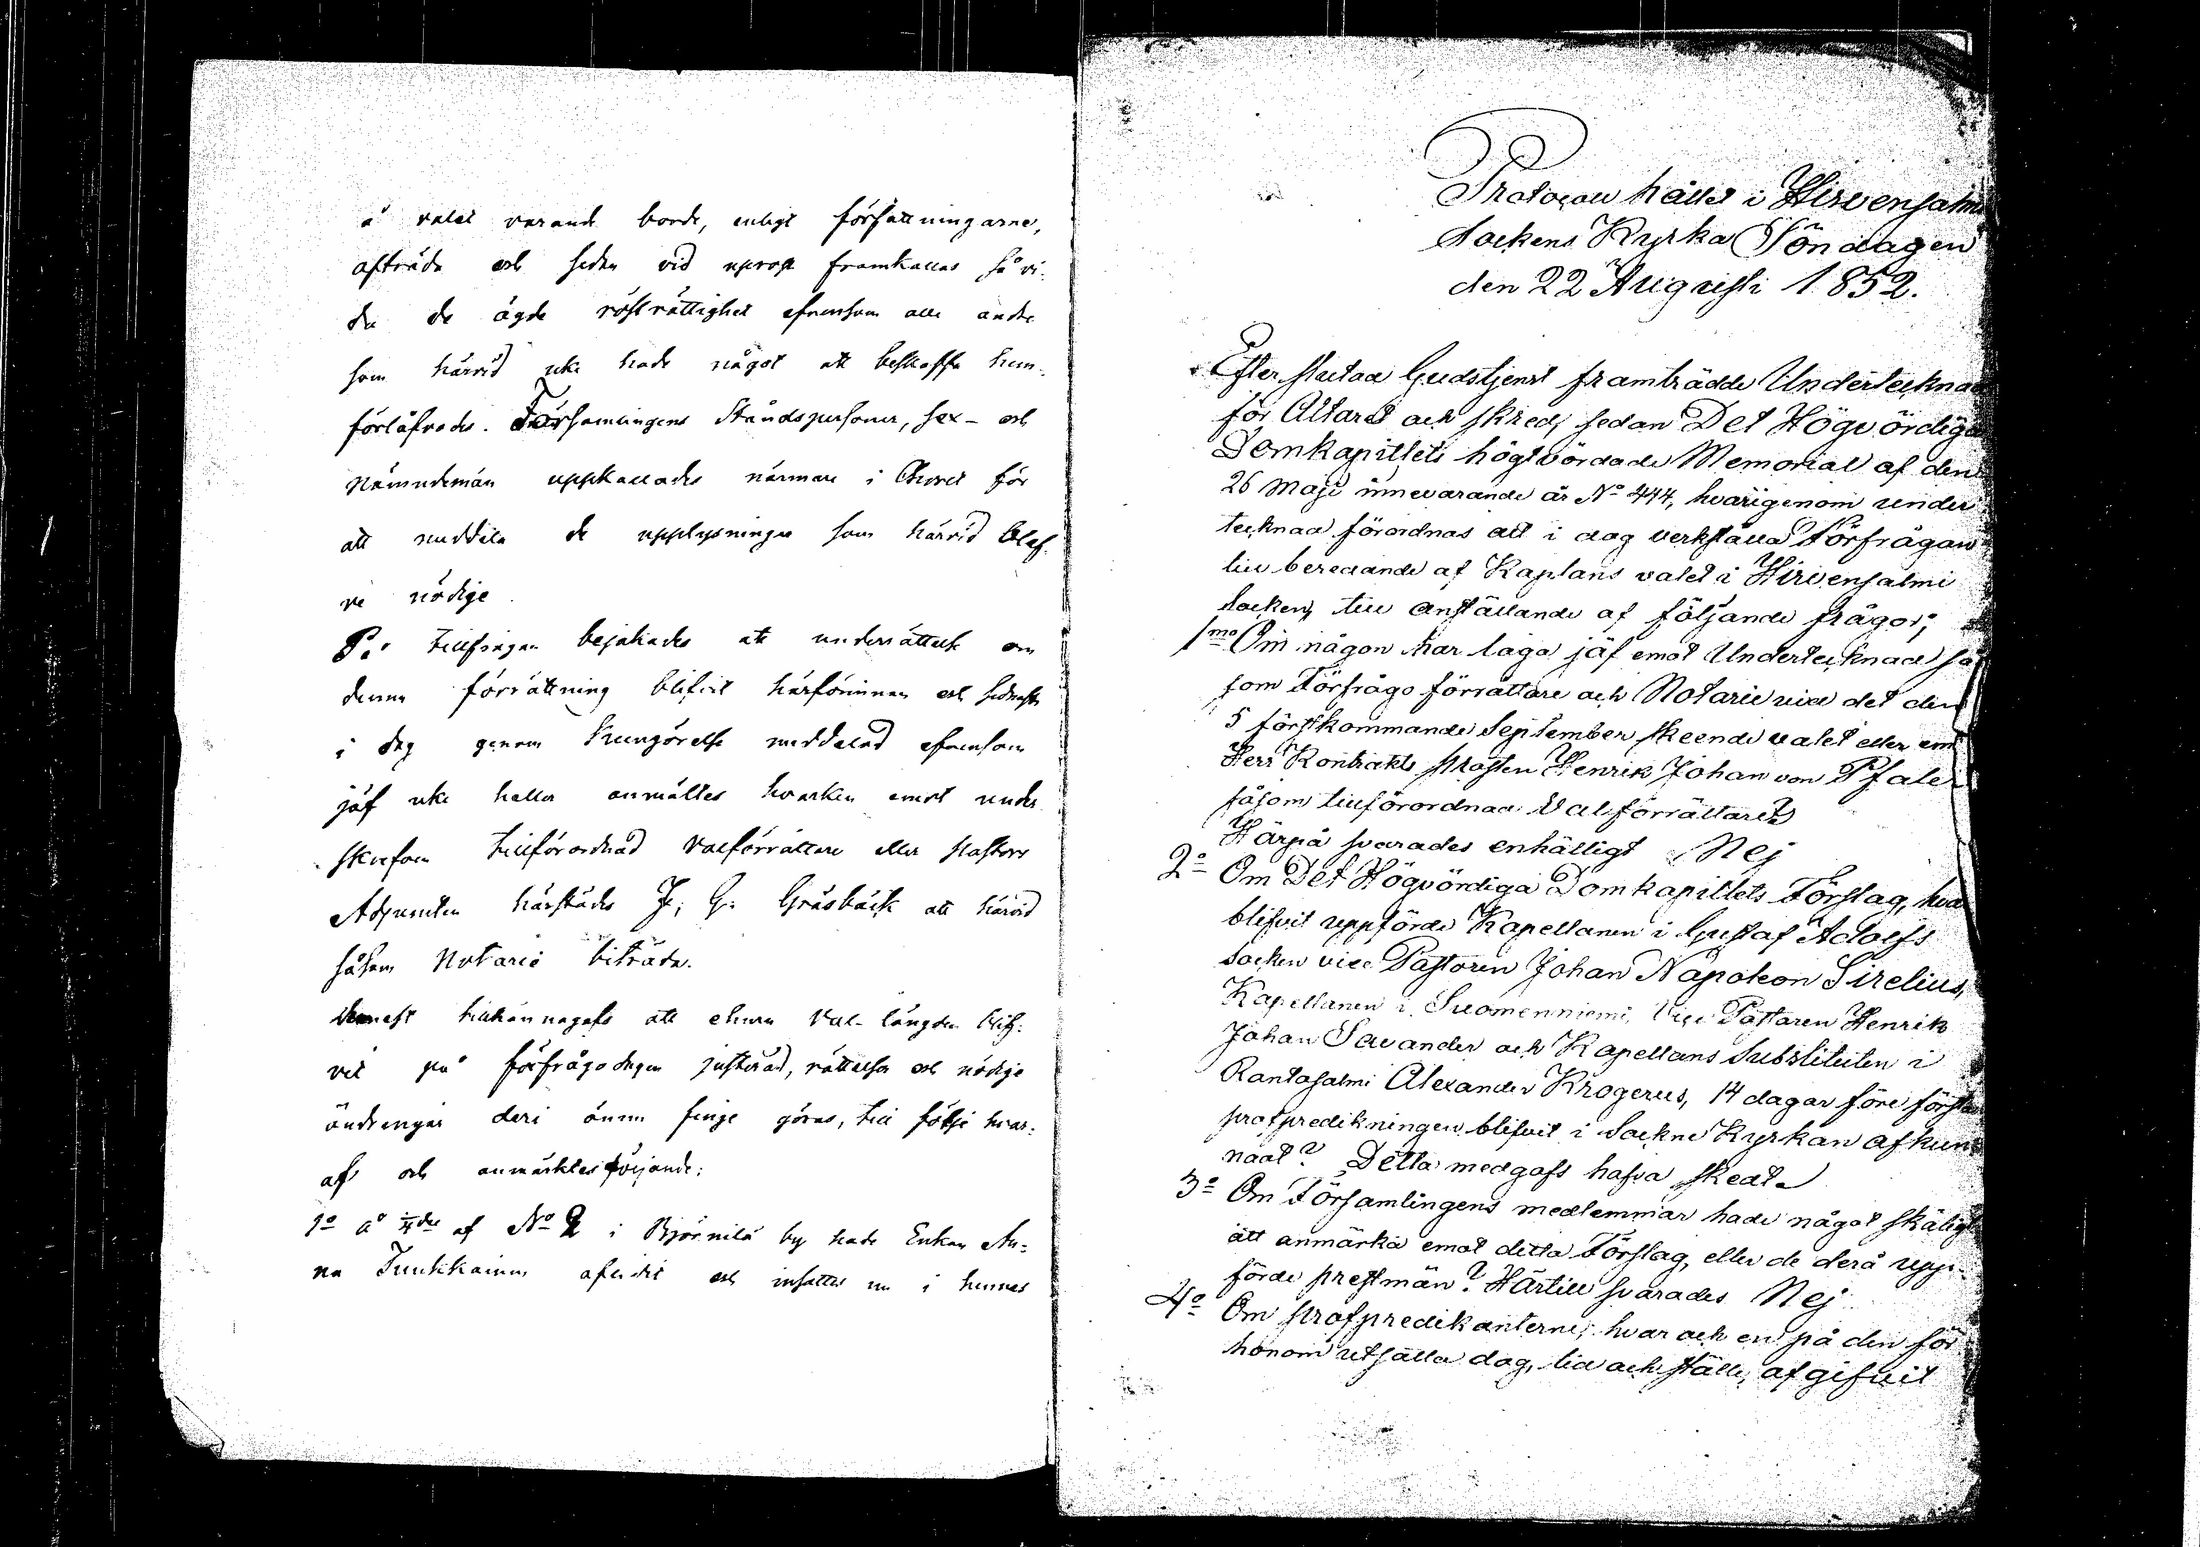 å valet varande borde, enligt författningarne,
afträda och sedan vid uprop framkallas så vi-
da de ägde rösträttighet efvensom alla andra
som härvid icke hade något att beskaffa hem-
förlåfvades. Församlingens Ståndspersoner, sex- och
nämndemän uppkallades närmare i Choret för
att meddela de upplysningar som härvid blef-
ve nödige.
På tillfrågan bejakades att underrättelse om
denna förrättning blifvit härförinnan och sednast
i dag genom Kungörelse meddelad efvensom
jäf icke heller anmältes hvarken emot under-
skrefven tillförordnad Valförrättare eller Pastors
Adjuncten härstädes J. G. Gråsbäck att härvid
såsom Notarie biträda.
Dernest tillkännagafs att ehuru Val-längden blif-
vit på förfrågodagen justerad, rättelser och nödige
ändringar deri ännu finge göras, till följe hvar-
af och anmärktes följande:
1o å 1/4del af No 2 i Björnilä by hade Enkan An-
na Tuukkainen aflidit och insattes nu i hennes
Protocoll hållet i Hirvensalmi
Sockens Kyrka Söndagen
den 22 Augusti 1852.
Efter slutad Gudstjenst framträdde Undertecknad
för Altaret och skred, sedan Det Högvördiga
Domkapitlets högtvördade Memorial af den
26 Maji innevarande år No 444, hvarigenom under
tecknad förordnas att i dag verkställa Förfrågan
till beredande af Kaplans valet i Hirvensalmi
Socken, till anställande af följande frågor;
1mo Om någon har laga jäf emot Undertecknad så
som Förfrågo förrättare och Notarie vid det den
5 förstkommande September skeende valet eller emot
Herr Kontrakts Prosten Henrik Johan von Pfaler
såsom tillförordnad Valförrättare?
Härpå svarades enhälligt Nej
2o Om Det Högvördiga Domkapitlets Förslag, hvar
blifvit uppförde Kapellanen i Gustaf Adolfs
Socken vice Pastoren Johan Napoleon Sirelius,
Kapellanen i Suomenniemi, Vice Pastoren Henrik
Johan Savander och Kapellans Substituten i
Rantasalmi Alexander Krogerus, 14 dagar före första
profpredikningen blifvit i Sockne Kyrkan afkun-
nadt? Detta medgafs hafva skedt.
3o Om Församlingens medlemmar hade något skäligt
att anmärka emot detta Förslag, eller de derå upp-
förde prestmän? Härtill svarades Nej
4o Om profpredikanterne, hvar och en på den för
honom utsatta dag, tid och ställe, afgifvit